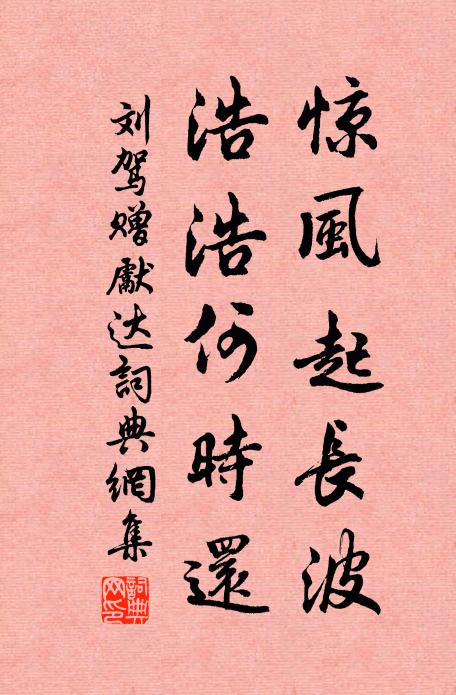 惊風起長波
浩浩何時還
刘驾赠獻达詞典網集
詞典网印